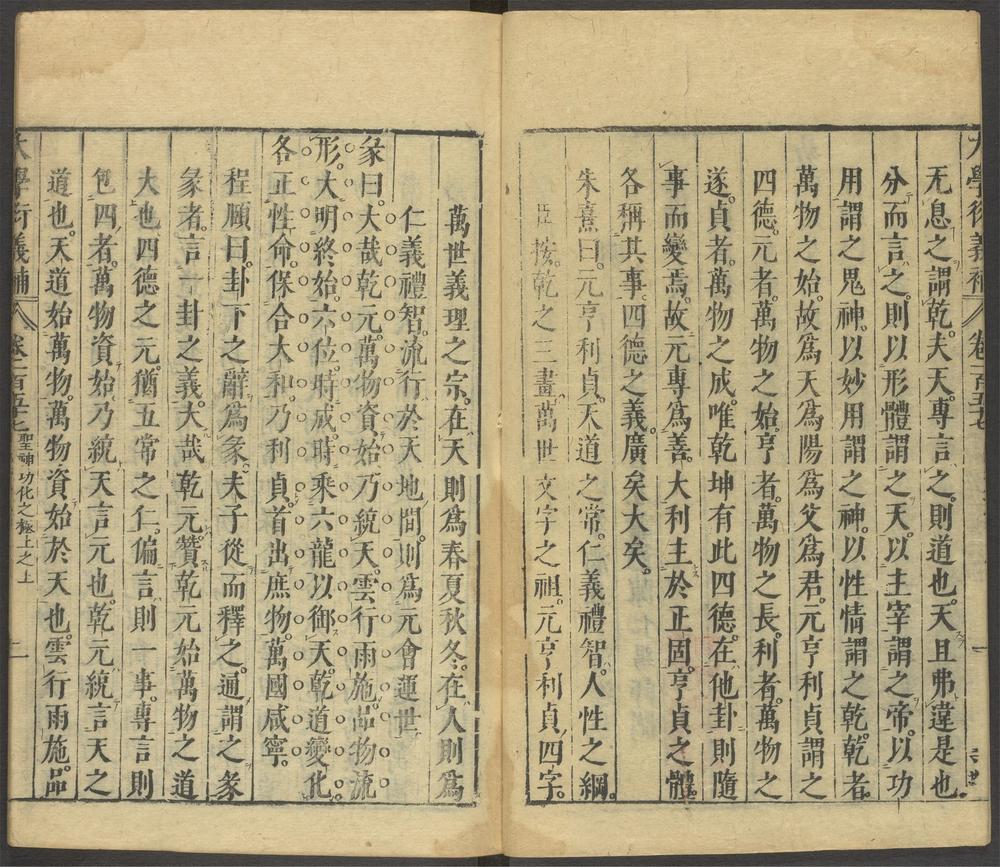 大學衍義補 卷一百五十七 一
无息之謂乾。夫天。專言之。則道也。天且弗違是也。
分而言之。則以形體謂之天。以主宰謂之帝。以功
用謂之鬼神。以妙用謂之神。以性情謂之乾。乾者。
萬物之始。故爲天爲陽爲父爲君。元亨利貞謂之
四德。元者。萬物之始。亨者。萬物之長。利者。萬物之
遂。貞者。萬物之成。唯乾坤有此四德。在他卦則隨
事而變焉。故元專爲善。大利主於正固。亨貞之體
各稱其事。四德之義。廣矣大矣。
朱熹曰。元亨利貞。天道之常。仁義禮智。人性之綱。
臣按。乾之三畫。萬世文字之祖。元亨利貞四字。
萬世義理之宗。在天則爲春夏秋冬。在人則爲
仁義禮智。流行於天地間。則爲元會運世
彖曰。大哉乾元。萬物資始。乃統天。雲行雨施。品物流
形。大明終始。六位時成。時乘六龍以御天。乾道變化
各正性命。保合大和。乃利貞。首出庶物。萬國咸寧。
程頤曰。卦下之辭爲彖。夫子從而釋之。通謂之彖
彖者。言一卦之義。大哉乾元。贊乾元始萬物之道
大也。四德之元。猶五常之仁。偏言則一事。專言則
包四者。萬物資始。乃統天。言元也。乾元。統言天之
道也。天道始萬物。萬物資始於天也。雲行雨施。品
大學衍義補 卷一百五十七 聖神功化之極上之上 二